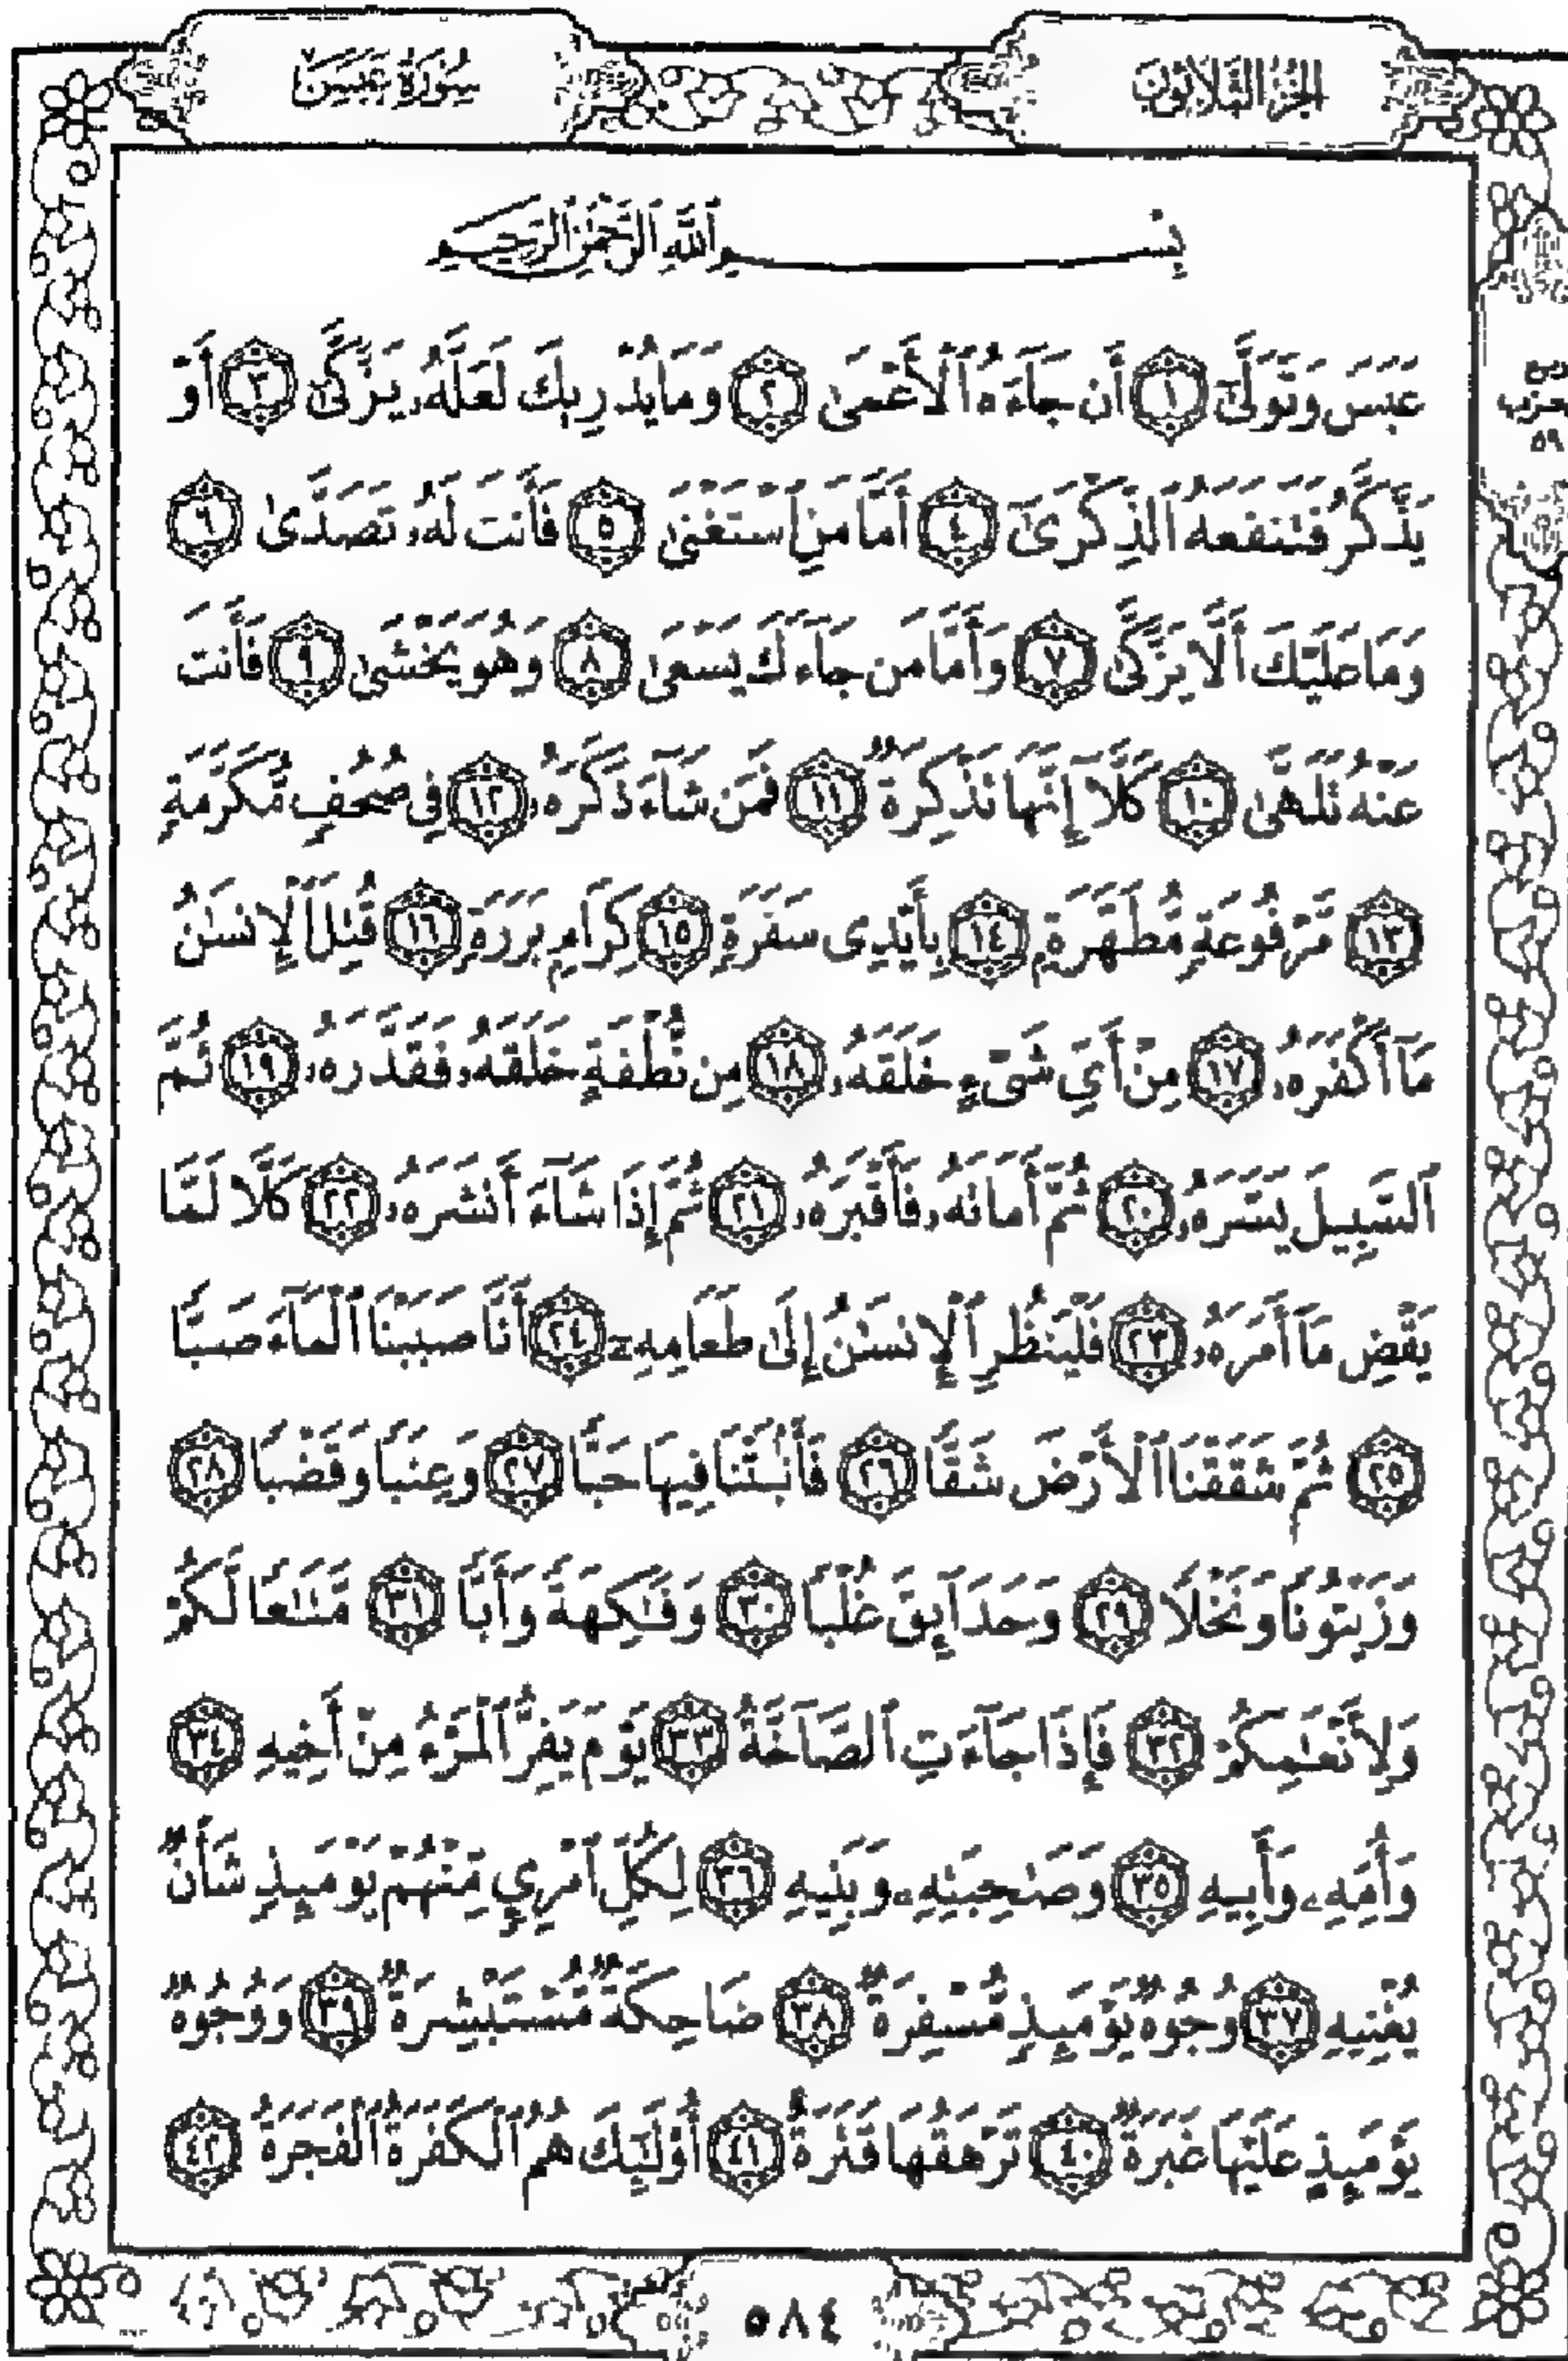 الجزء الثلاثون
سورة عبس
ربع
حزب
٥٩
بِسْمِ ٱللَّهِ ٱلرَّحْمَٰنِ ٱلرَّحِيمِ
عَبَسَ وَتَوَلَّىٰٓ ١ أَن جَآءَهُ ٱلْأَعْمَىٰ ٢ وَمَا يُدْرِيكَ لَعَلَّهُۥ يَزَّكَّىٰٓ ٣ أَوْ
يَذَّكَّرُ فَتَنفَعَهُ ٱلذِّكْرَىٰٓ ٤ أَمَّا مَنِ ٱسْتَغْنَىٰ ٥ فَأَنتَ لَهُۥ تَصَدَّىٰ ٦
وَمَا عَلَيْكَ أَلَّا يَزَّكَّىٰ ٧ وَأَمَّا مَن جَآءَكَ يَسْعَىٰ ٨ وَهُوَ يَخْشَىٰ ٩ فَأَنتَ
عَنْهُ تَلَهَّىٰ ١٠ كَلَّآ إِنَّهَا تَذْكِرَةٌ ١١ فَمَن شَآءَ ذَكَرَهُۥ ١٢ فِى صُحُفٍ مُّكَرَّمَةٍ
١٣ مَّرْفُوعَةٍ مُّطَهَّرَةٍۭ ١٤ بِأَيْدِى سَفَرَةٍ ١٥ كِرَامٍۭ بَرَرَةٍ ١٦ قُتِلَ ٱلْإِنسَٰنُ
مَآ أَكْفَرَهُۥ ١٧ مِنْ أَىِّ شَىْءٍ خَلَقَهُۥ ١٨ مِن نُّطْفَةٍ خَلَقَهُۥ فَقَدَّرَهُۥ ١٩ ثُمَّ
ٱلسَّبِيلَ يَسَّرَهُۥ ٢٠ ثُمَّ أَمَاتَهُۥ فَأَقْبَرَهُۥ ٢١ ثُمَّ إِذَا شَآءَ أَنشَرَهُۥ ٢٢ كَلَّا لَمَّا
يَقْضِ مَآ أَمَرَهُۥ ٢٣ فَلْيَنظُرِ ٱلْإِنسَٰنُ إِلَىٰ طَعَامِهِۦٓ ٢٤ أَنَّا صَبَبْنَا ٱلْمَآءَ صَبًّا
٢٥ ثُمَّ شَقَقْنَا ٱلْأَرْضَ شَقًّا ٢٦ فَأَنۢبَتْنَا فِيهَا حَبًّا ٢٧ وَعِنَبًا وَقَضْبًا ٢٨
وَزَيْتُونًا وَنَخْلًا ٢٩ وَحَدَآئِقَ غُلْبًا ٣٠ وَفَٰكِهَةً وَأَبًّا ٣١ مَّتَٰعًا لَّكُمْ
وَلِأَنْعَٰمِكُمْ ٣٢ فَإِذَا جَآءَتِ ٱلصَّآخَّةُ ٣٣ يَوْمَ يَفِرُّ ٱلْمَرْءُ مِنْ أَخِيهِ ٣٤
وَأُمِّهِۦ وَأَبِيهِ ٣٥ وَصَٰحِبَتِهِۦ وَبَنِيهِ ٣٦ لِكُلِّ ٱمْرِئٍ مِّنْهُمْ يَوْمَئِذٍ شَأْنٌ
يُغْنِيهِ ٣٧ وُجُوهٌ يَوْمَئِذٍ مُّسْفِرَةٌ ٣٨ ضَاحِكَةٌ مُّسْتَبْشِرَةٌ ٣٩ وَوُجُوهٌ
يَوْمَئِذٍ عَلَيْهَا غَبَرَةٌ ٤٠ تَرْهَقُهَا قَتَرَةٌ ٤١ أُو۟لَٰٓئِكَ هُمُ ٱلْكَفَرَةُ ٱلْفَجَرَةُ ٤٢
٥٨٤